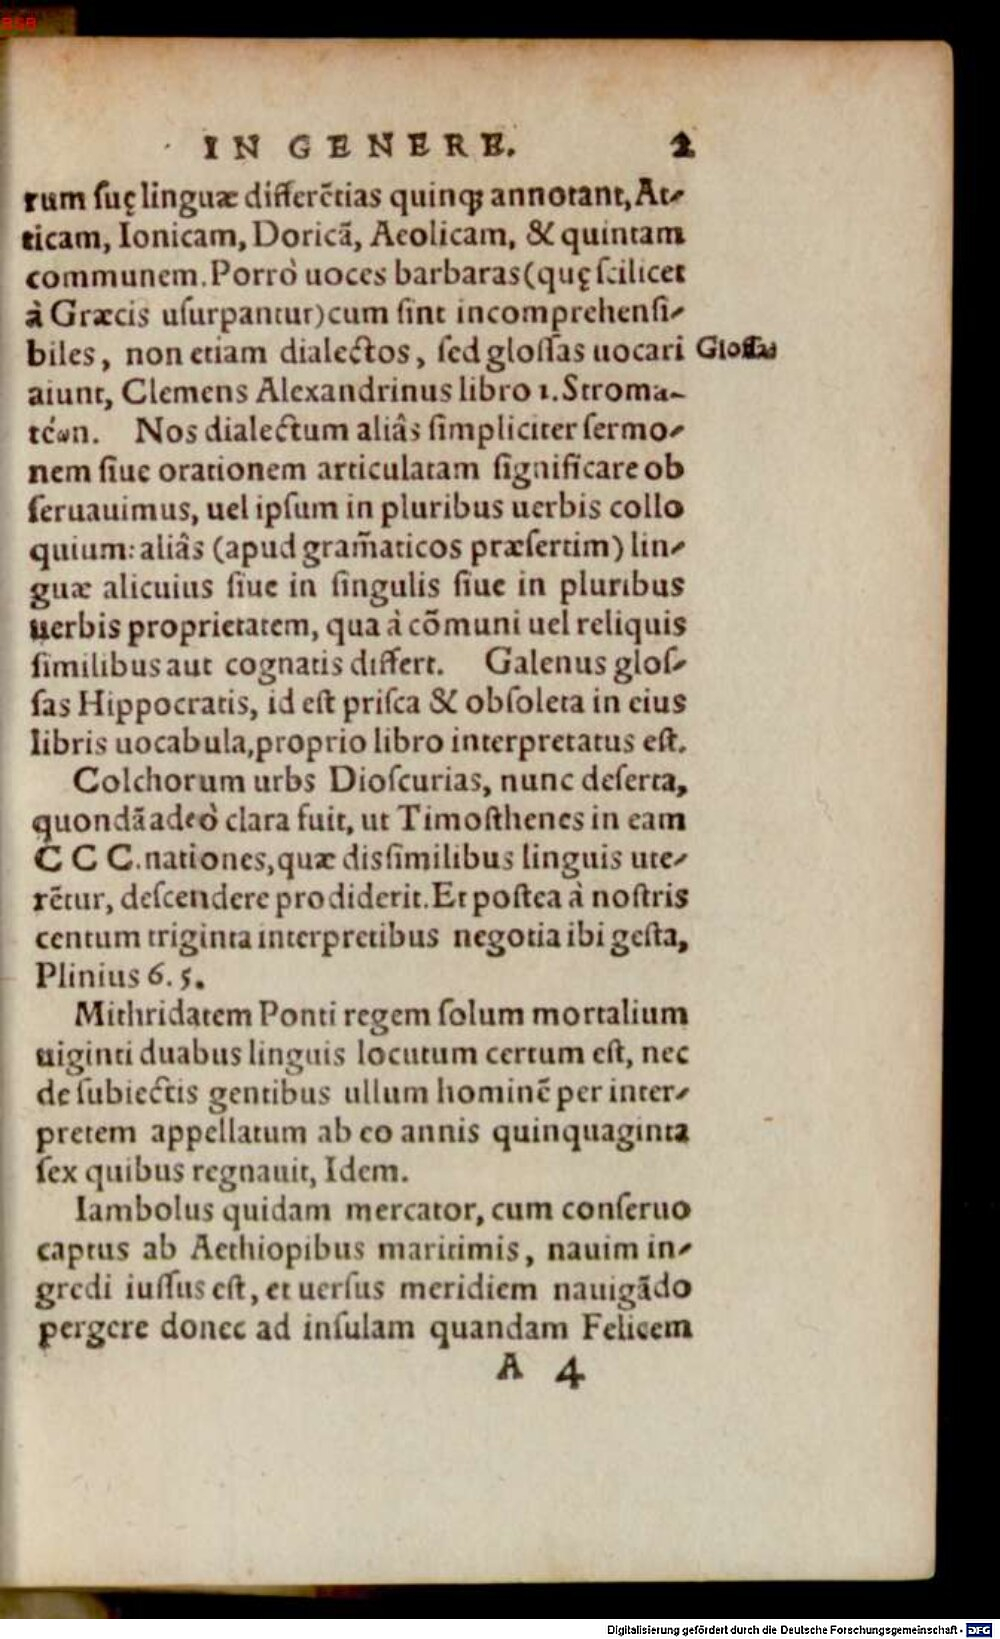 BSB
IN GENERE. 2
rum ſuę linguæ differẽtias quinꝗ annotant, At-
ticam, Ionicam, Doricã, Aeolicam, & quintam
communem. Porrò uoces barbaras (quę ſcilicet
à Græcis uſurpantur) cum ſint incomprehenſi-
biles, non etiam dialectos, ſed gloſſas uocari Gloſſas
aiunt, Clemens Alexandrinus libro 1. Stroma-
téωn. Nos dialectum aliâs ſimpliciter ſermo-
nem ſiue orationem articulatam ſignificare ob
ſeruauimus, uel ipſum in pluribus uerbis collo
quium: aliâs (apud gram̃aticos præſertim) lin-
guæ alicuius ſiue in ſingulis ſiue in pluribus
uerbis proprietatem, qua à cõmuni uel reliquis
ſimilibus aut cognatis differt. Galenus gloſ-
ſas Hippocratis, id eſt priſca & obſoleta in eius
libris uocabula, proprio libro interpretatus eſt.
Colchorum urbs Dioſcurias, nunc deſerta,
quondã adeò clara fuit, ut Timoſthenes in eam
C C C. nationes, quæ dissimilibus linguis ute-
rẽtur, deſcendere prodiderit. Et poſtea à noſtris
centum triginta interpretibus negotia ibi geſta,
Plinius 6. 5.
Mithridatem Ponti regem ſolum mortalium
uiginti duabus linguis locutum certum eſt, nec
de ſubiectis gentibus ullum hominẽ per inter-
pretem appellatum ab eo annis quinquaginta
ſex quibus regnauit, Idem.
Iambolus quidam mercator, cum conſeruo
captus ab Aethiopibus maritimis, nauim in-
gredi iuſſus eſt, et uerſus meridiem nauigãdo
pergere donec ad inſulam quandam Felicem
A 4
Digitalisierung gefördert durch die Deutsche Forschungsgemeinschaft - DFG